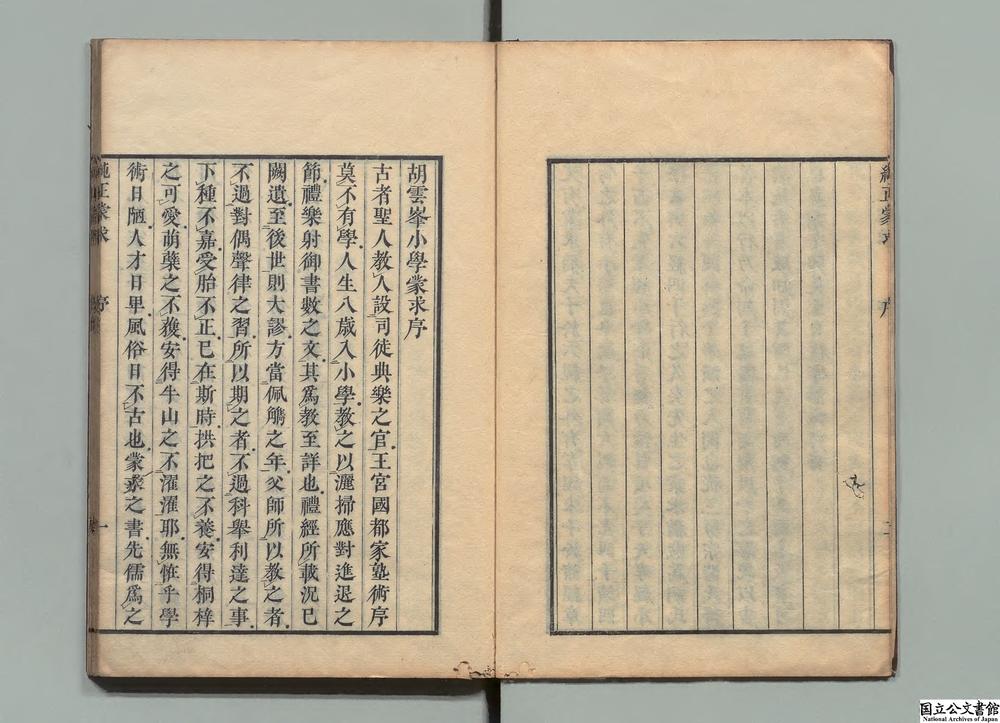 純正蒙求
序
二
胡雲峯小學蒙求序
古者聖人教人設司徒典樂之官王宮國都家塾術序
莫不有學人生八歲入小學教之以灑掃應對進退之
節禮樂射御書數之文其爲教至詳也禮經所載況已
闕遺至後世則大謬方當佩觿之年父師所以教之者
不過對偶聲律之習所以期之者不過科舉利達之事
下種不嘉受胎不正已在斯時拱把之不養安得桐梓
之可愛萌蘖之不𫉬安得牛山之不濯濯耶無恠乎學
術日陋人才日卑風俗日不古也蒙求之書先儒爲之
純正蒙求
序
一
国立公文書館
National Archives of Japan